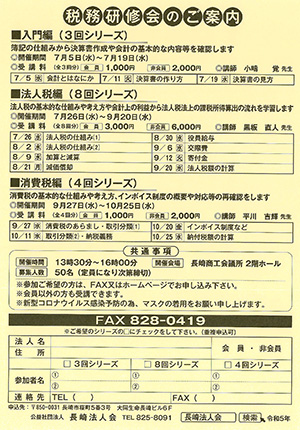 税務研修会のご案内
■入門編(3回シリーズ)
簿記の仕組みから決算書作成や会計の基本的な内容等を確認します
◎開催期間 7月5日(水)~7月19日(水)
◎受講料(全3回分) 会員 1,000円 非会員 2,000円 ◎講師 小晴 覚先生
7/5 水 会計とはなにか 7/11 火 決算書の作り方 7/19 水 決算書の見方
■法人税編(8回シリーズ)
法人税の基本的な仕組みや考え方や会計上の利益から法人税法上の課税所得算出の流れを学習します
◎開催期間 7月26日(水)~9月20日(水)
◎受講料(全8回分) 会員 3,000円 非会員 6,000円 ◎講師 黒板 直人先生
7/26 水 法人税の仕組み① 8/30 水 役員給与
8/2 水 法人税の仕組み② 9/6 水 交際費
8/9 水 加算と減算 9/12 火 寄付金
8/21 月 減価償却 9/20 水 法人税申告書
■消費税編(4回シリーズ)
消費税の基本的な仕組みや考え方、インボイス制度の概要や対応等の再確認をします
◎開催期間 9月27日(水)~10月25日(水)
◎受講料(全4回分) 会員 1,000円 非会員 2,000円 ◎講師 平川 吉輝先生
9/27 水 消費税のあらまし・取引分類① 10/20 金 インボイス制度など
10/11 水 取引分類②・納税義務 10/25 水 納付税額の計算
共通事項
開催時間 13時30分~16時00分 開催会場 長崎商工会議所 2階ホール
募集人数 50名(定員になり次第締切)
※参加ご希望の方は、FAX又はホームページでお申し込み下さい。
※会員以外の方も受講できます。
※新型コロナウイルス感染予防の為、マスクの着用をお願い申し上げます。
FAX 828-0419
※ご希望のシリーズの□にチェックをして下さい。(重複申込可)
法人名 会員・非会員
住所
□3回シリーズ □8回シリーズ □4回シリーズ
参加者名 ① ① ①
② ② ②
連絡先 TEL( ) FAX( )
申込先:〒850-0031 長崎市桜町5番3号 大同生命長崎ビル6F
公益社団法人 長崎法人会 TEL 825-8091 長崎法人会 検索 令和5年